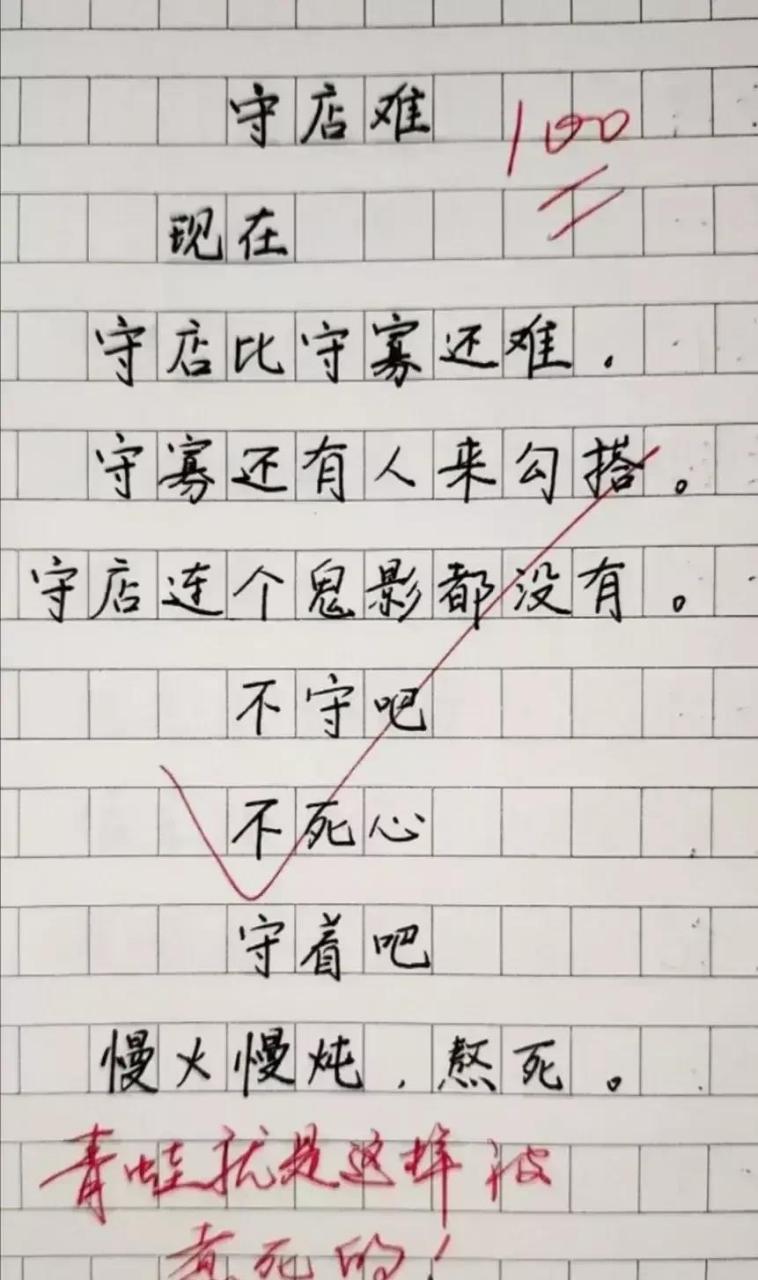 守店难
100
现在
守店比守寡还难.
守寡还有人来勾搭。
守店连个鬼影都没有。
不守吧
不死心
守着吧
慢火慢炖,熬死。
青蛙就是这样被
煮死的!